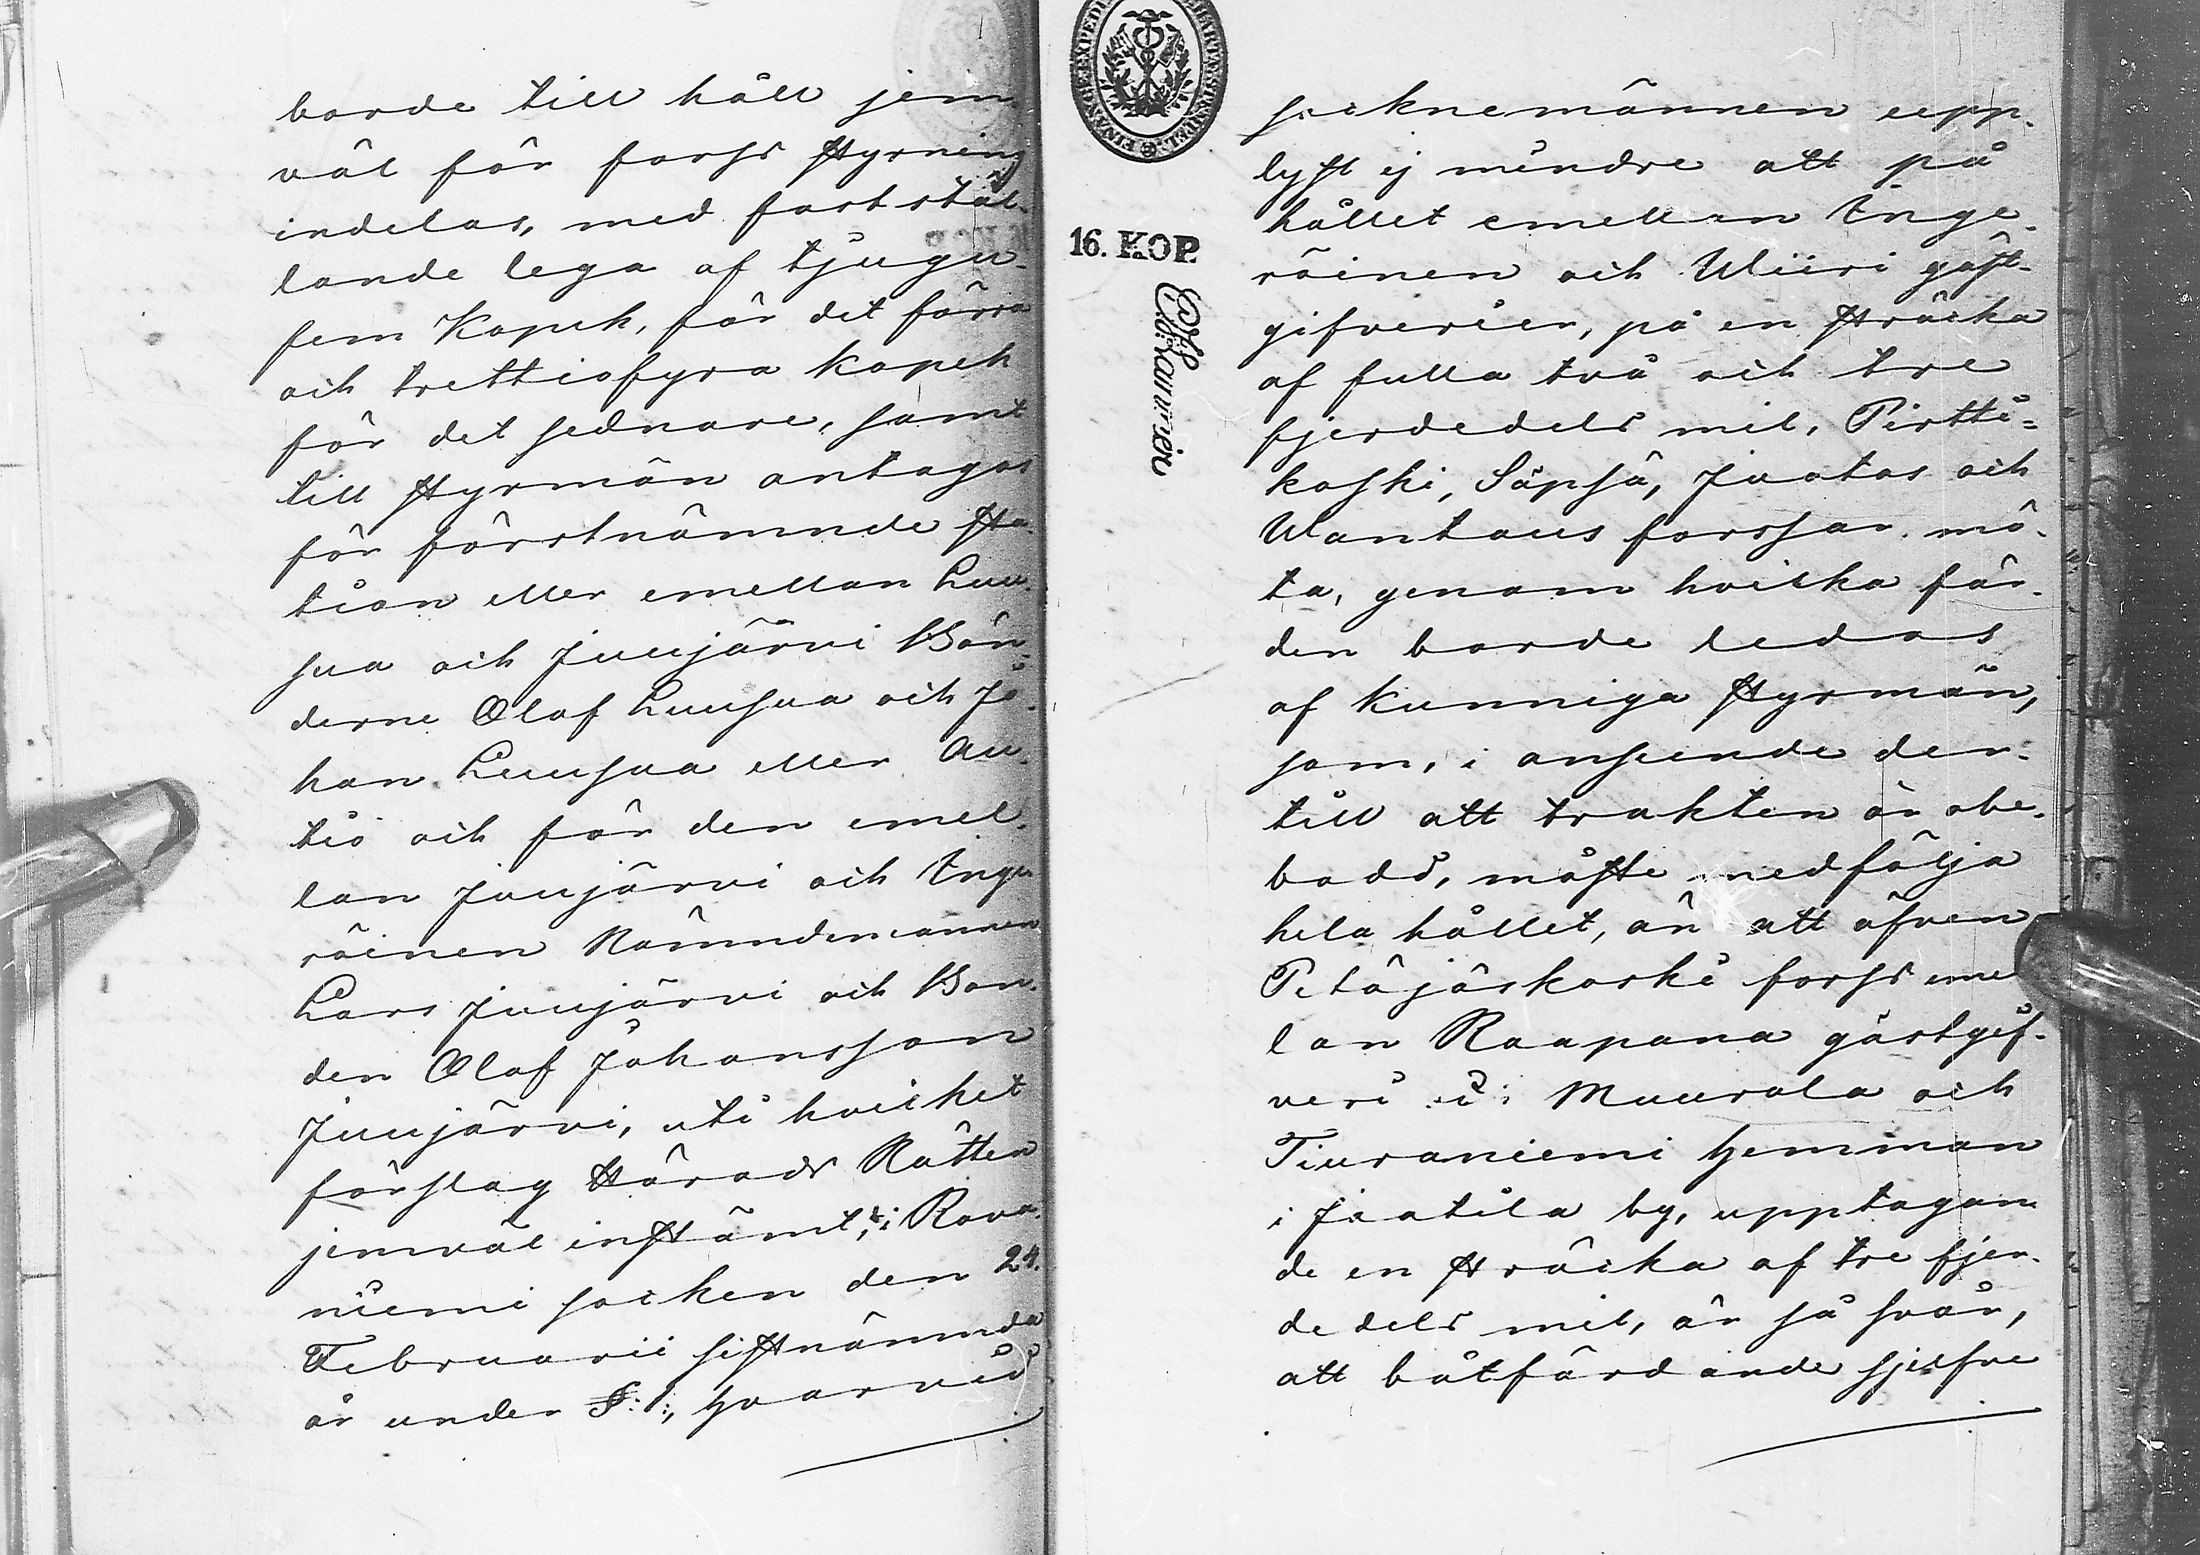 borde till håll jem¬
väl för forss styrning
indelas, med fastställ¬
lande lega af tjugu¬
fem Kopek, för det förra
och trettiofyra kopek
för det sednare, samt
till styrmän antagas
för förstnämnde sta¬
tion eller emellan Luu¬
sua och Juujärvi Bön¬
derne Olof Luusua och Jo¬
han Luusua eller Au¬
tio och för den emel¬
lan Juujärvi och Inge
röinen Nämndemannen
Lars Juujärvi och Bon¬
den Olof Johansson
Juujärvi, uti hvilket
förslag Härads Rätten
jemväl instämt, i Rova¬
niemi socken den 24.
Februarii sistnämnda
år under §: , hvarvid
socknemännen upp¬
lyst ej mindre att på
hållet emellan Inge¬
röinen och Wiiri gäst¬
gifverier, på en sträcka
af fulla två och tre
fjerdedels mil, Pirtti=
koski, Säpsä, Juotas och
Wantaus forssar mö¬
ta, genom hvilka fär¬
den borde ledas
af kunniga styrmän,
som, i anseende der¬
till att trakten är obe¬
bodd, måste medfölja
hela hållet, än att äfven
Petäjäskoski forss emel
lan Raapana gästgif¬
veri i Muurola och
Tiuraniemi hemman
i Jaatila by, upptagan
de en sträcka af tre fjer¬
dedels mil, är så svår,
att båtfärdande sjelfve
16. KOP.